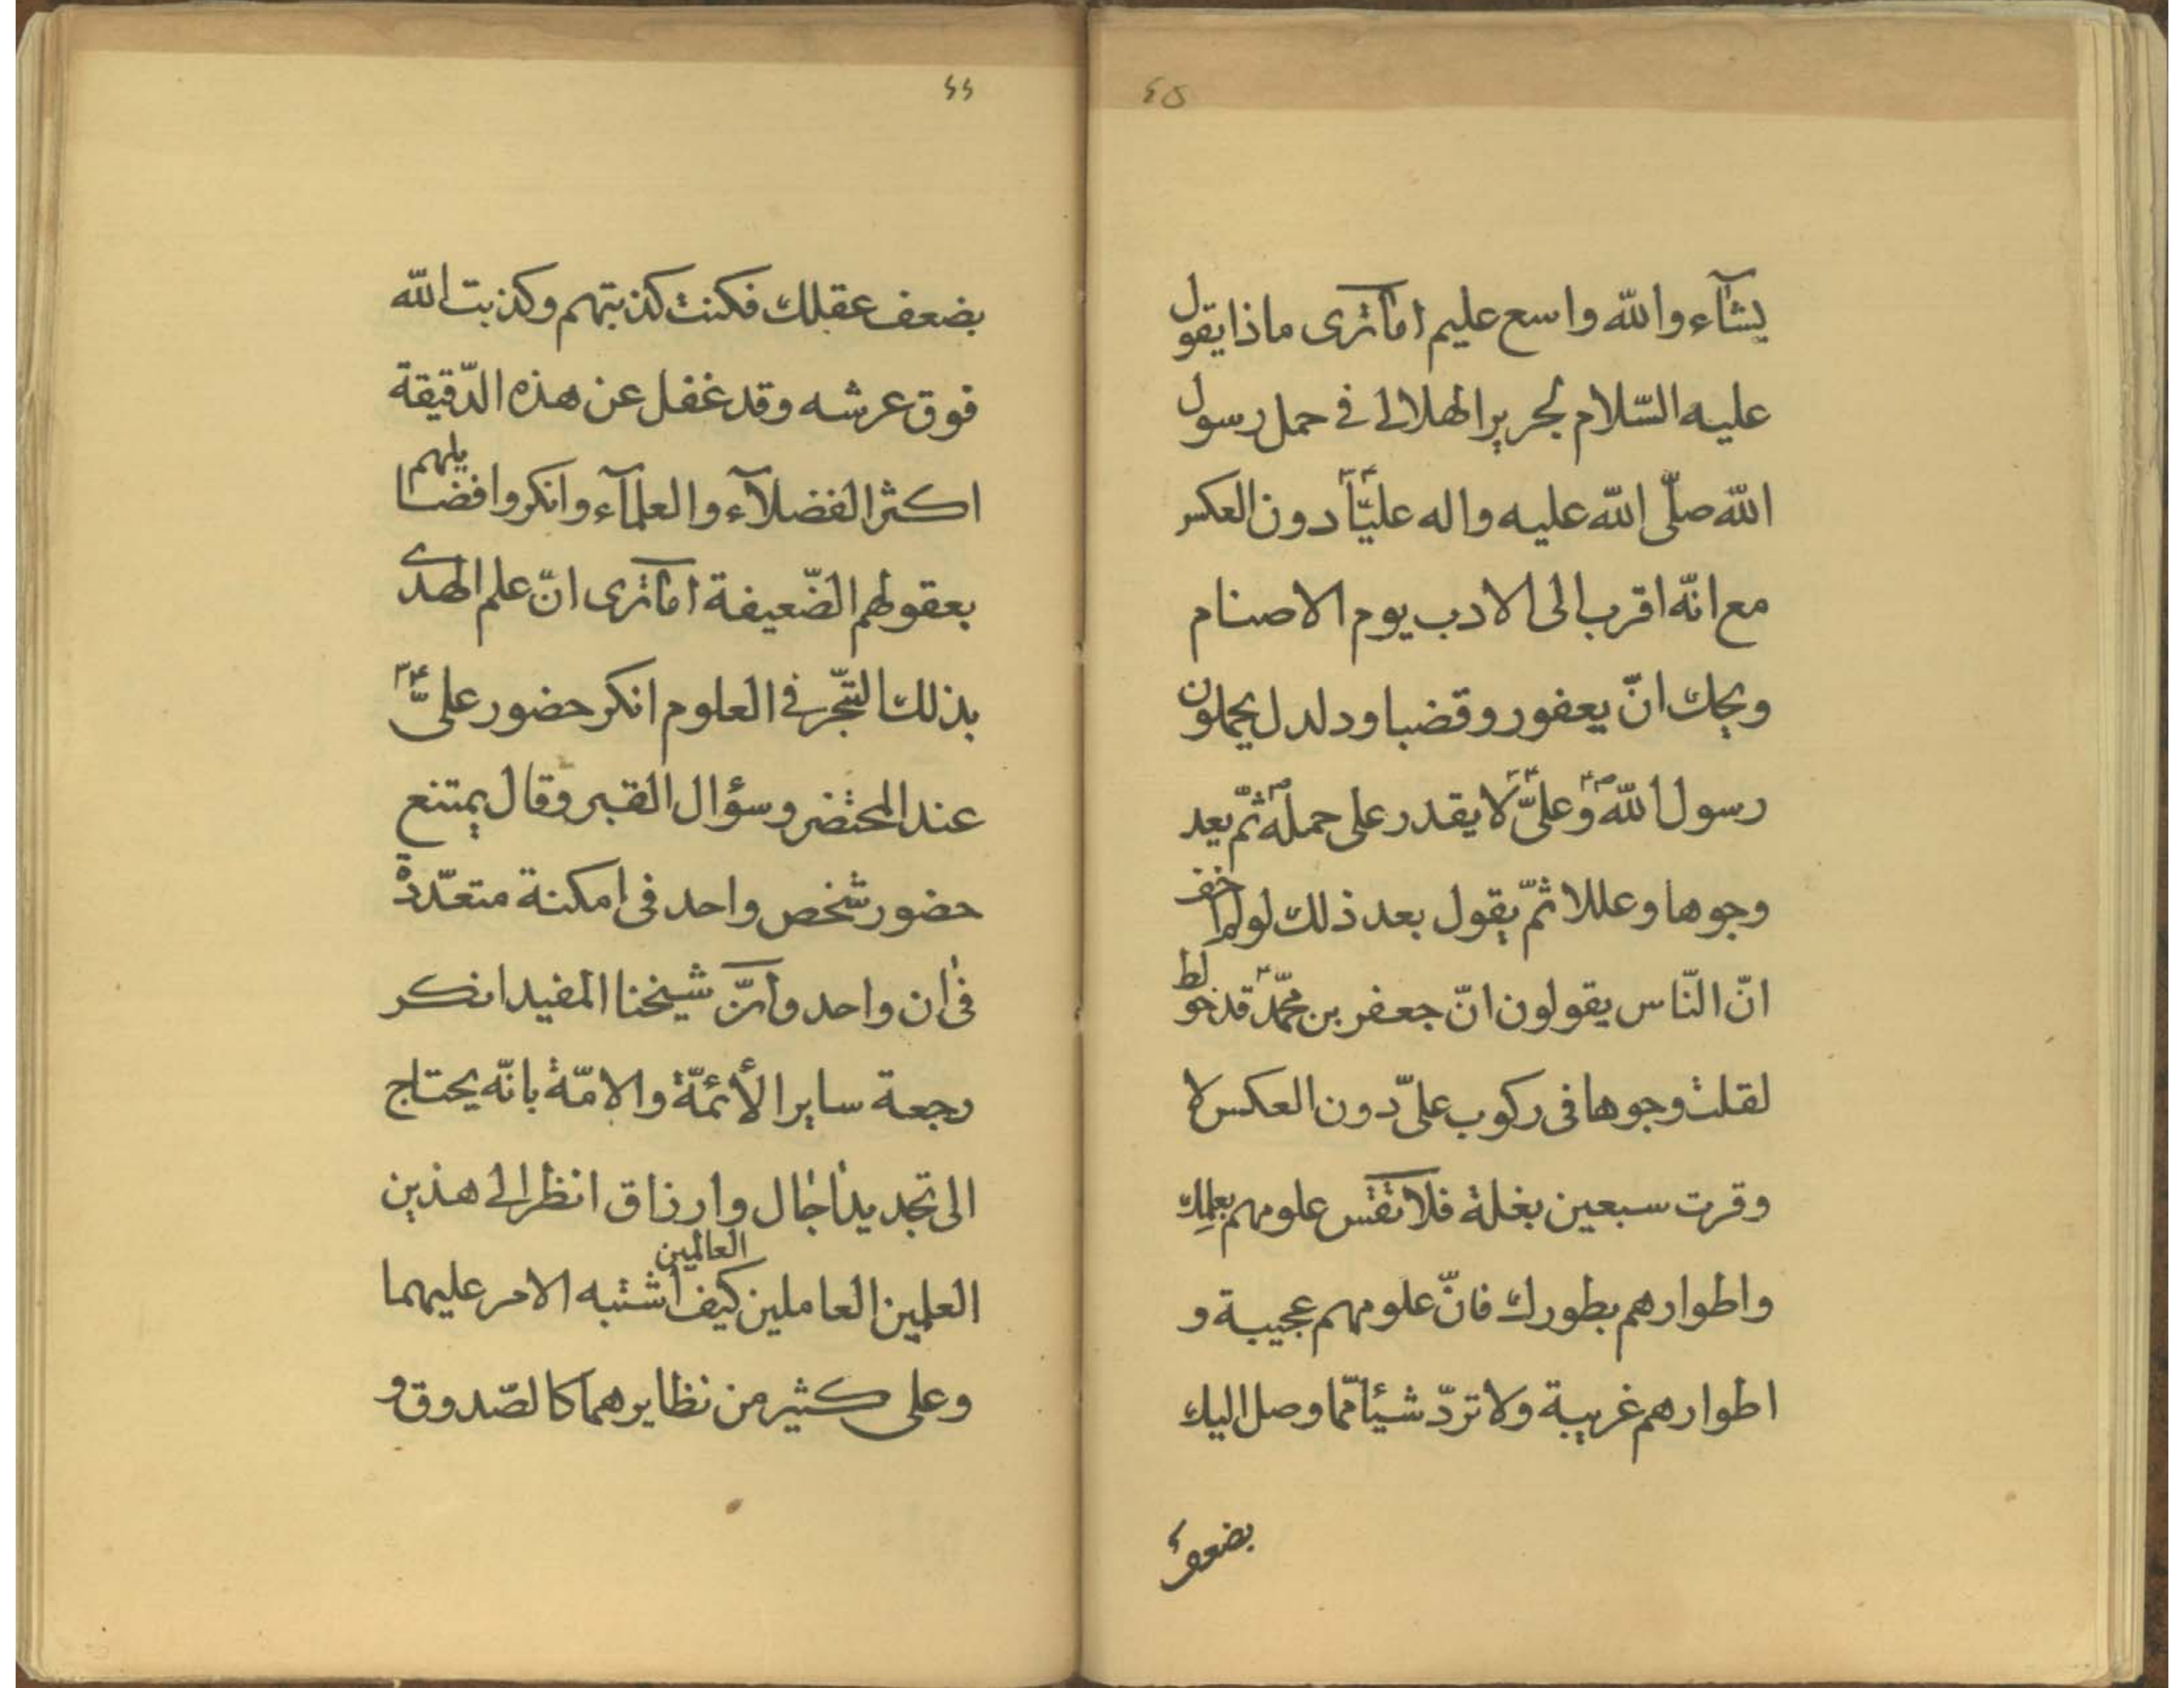 ٤٥
يشآء والله واسع عليم اماترى ماذا يقول
عليه السّلام لحرير الهلالى فى حمل رسول
الله صلّى الله عليه واله عليّاً دون العكس
مع انّه اقرب الى الادب يوم الاصنام
ويحك انّ يعفور وقضبا ودلدل يحملون
رسول الله ص وعلىّ ع لا يقدر على حمله ثمّ يعد
وجوها وعللا ثمّ يقول بعد ذلك لولم اخف
انّ النّاس يقولون انّ جعفر بن محمّد قد خولط
لقلت وجوها فى ركوب علىّ دون العكس لا
وقرت سبعين بغلة فلا تقس علومهم بعلمك
واطوارهم بطورك فانّ علومهم عجيبة و
اطوارهم غريبة ولا تردّ شيئا ممّا وصل اليك
بضعف
٤٤
بضعف عقلك فكنت كذبتهم وكذبت الله
فوق عرشه وقد غفل عن هذه الدّقيقة
اكثر الفضلآء والعلمآء وانكروا فضايلهم
بعقولهم الضّعيفة اماترى انّ علم الهدى
بذلك التبحّر فى العلوم انكر حضور علىّ ع
عند المحتضر وسؤال القبر وقال يمتنع
حضور شخص واحد فى امكنة متعدّدة
فى ان واحد وانّ شيخنا المفيد انكر
رجعة ساير الأئمّة والامّة بانّه يحتاج
الى تجديد اجال وارزاق انظر الى هذين
العلمين العاملين العالمين كيف اشتبه الامر عليهما
وعلى كثير من نظايرهما كالصّدوق و